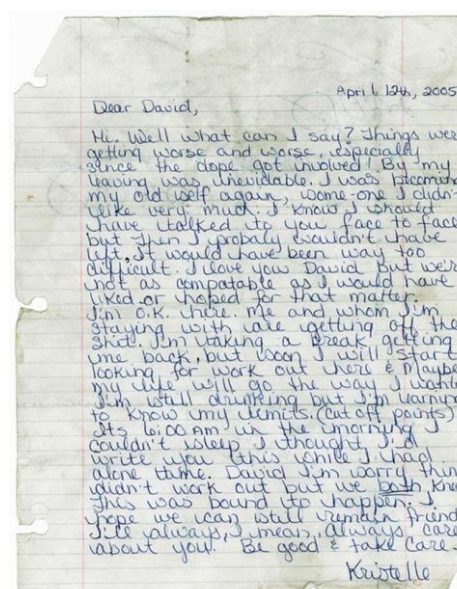 April 12th, 2005
Dear David,
Hi. Well what can I say? Things were
getting worse and worse, especially
since the dope got involved! By my
leaving was unevidable. I was becoming
my old self again, some-one I didn't
like very much. I know I should
have talked to you face to face
but then I probaly wouldn't have
left. It would have been way too
difficult. I love you David but we're
not as compatable as I would have
liked or hoped for that matter.
I'm O.K. here. me and whom I'm
staying with are getting off the
shit. I'm taking a break, getting
me back, but soon I will start
looking for work out here & maybe
my life will go the way I want
I'm still drinking but I'm learning
to know my limits. (cut off points)
Its 6:00 AM in the morning I
couldn't sleep I thought I'd
write you this while I had
alone time. David I'm sorry thin
didn't work out but we both kno
this was bound to happen. I
hope we can still remain friend
I'll always, I mean, always care
about you. Be good & take care.
Kristelle